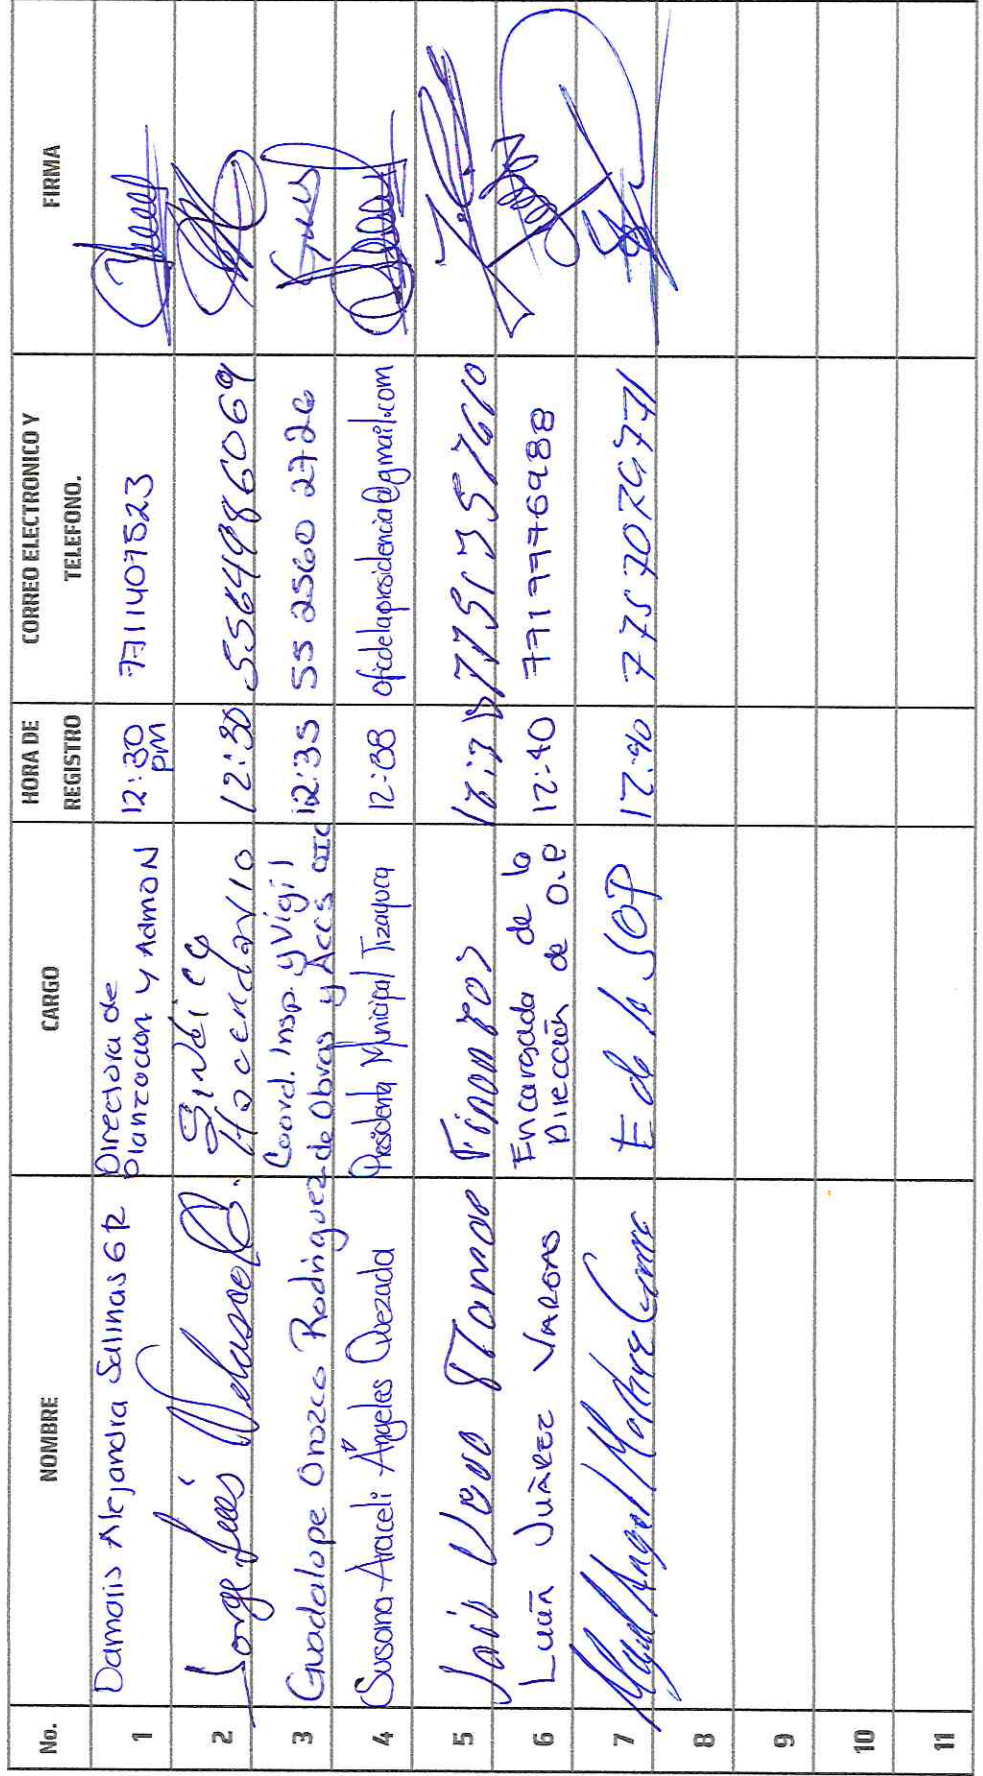 No. NOMBRE CARGO HORA DE REGISTRO CORREO ELECTRONICO Y TELEFONO. FIRMA
1 Damaris Alejandra Salinas GR Directora de Planeación y Admon 12:30 pm 7711407523
2 Jorge Luis Velasco Síndico Hacendario 12:30 5564986069
3 Guadalupe Orozco Rodriguez Coord. Insp. y Vigil de Obras y Accs OIC 12:35 55 2560 2726
4 Susana Araceli Ángeles Quezada Presidenta Municipal Tizayuca 12:38 ofidelapresidencia@gmail.com
5 Finanzas 7751357610
6 Luiña Juárez Vargas Encargada de la Dirección de O.P 12:40 7719776988
7 Miguel Angel E de la SOP 12:40 7757079771
8
9
10
11